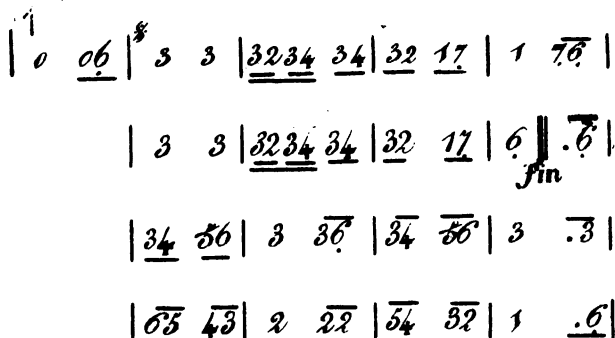 1
| 0 06 | 𝄋 3 3 | 3234 34 | 32 17 | 1 76 |
| 3 3 | 3234 34 | 32 17 | 6 || .6 |
fin
| 34 56 | 3 36 | 34 56 | 3 .3 |
| 65 43 | 2 22 | 54 32 | 1 .6 |